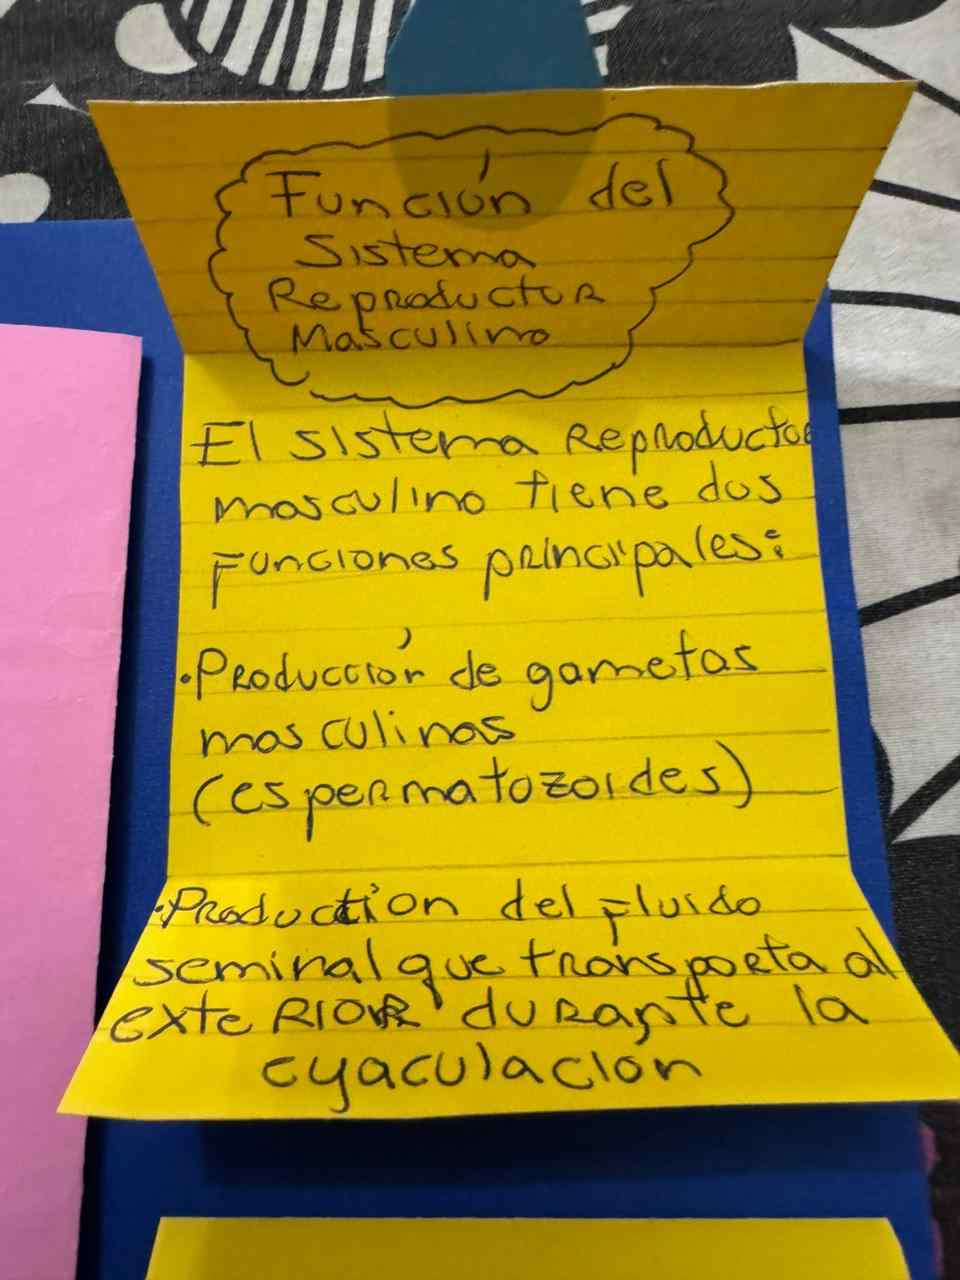 Función del
Sistema
Reproductor
Masculino
El sistema Reproductor
masculino tiene dos
Funciones principales:
·Producción de gametas
masculinas
(espermatozoides)
·Production del Fluido
seminal que transporta al
exterior durante la
eyaculacion